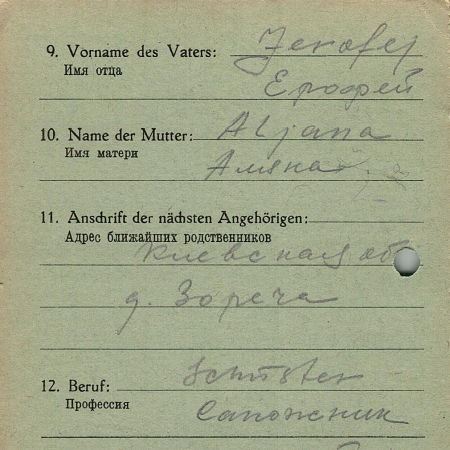 9. Vorname des Vaters: Jerofej
Имя отца
Ерофей
10. Name der Mutter: Aljana
Имя матери
Аляна
11. Anschrift der nächsten Angehörigen:
Адрес ближайших родственников
Киевская об
д. Зореча
12. Beruf: Schuster
Профессия
Сапожник